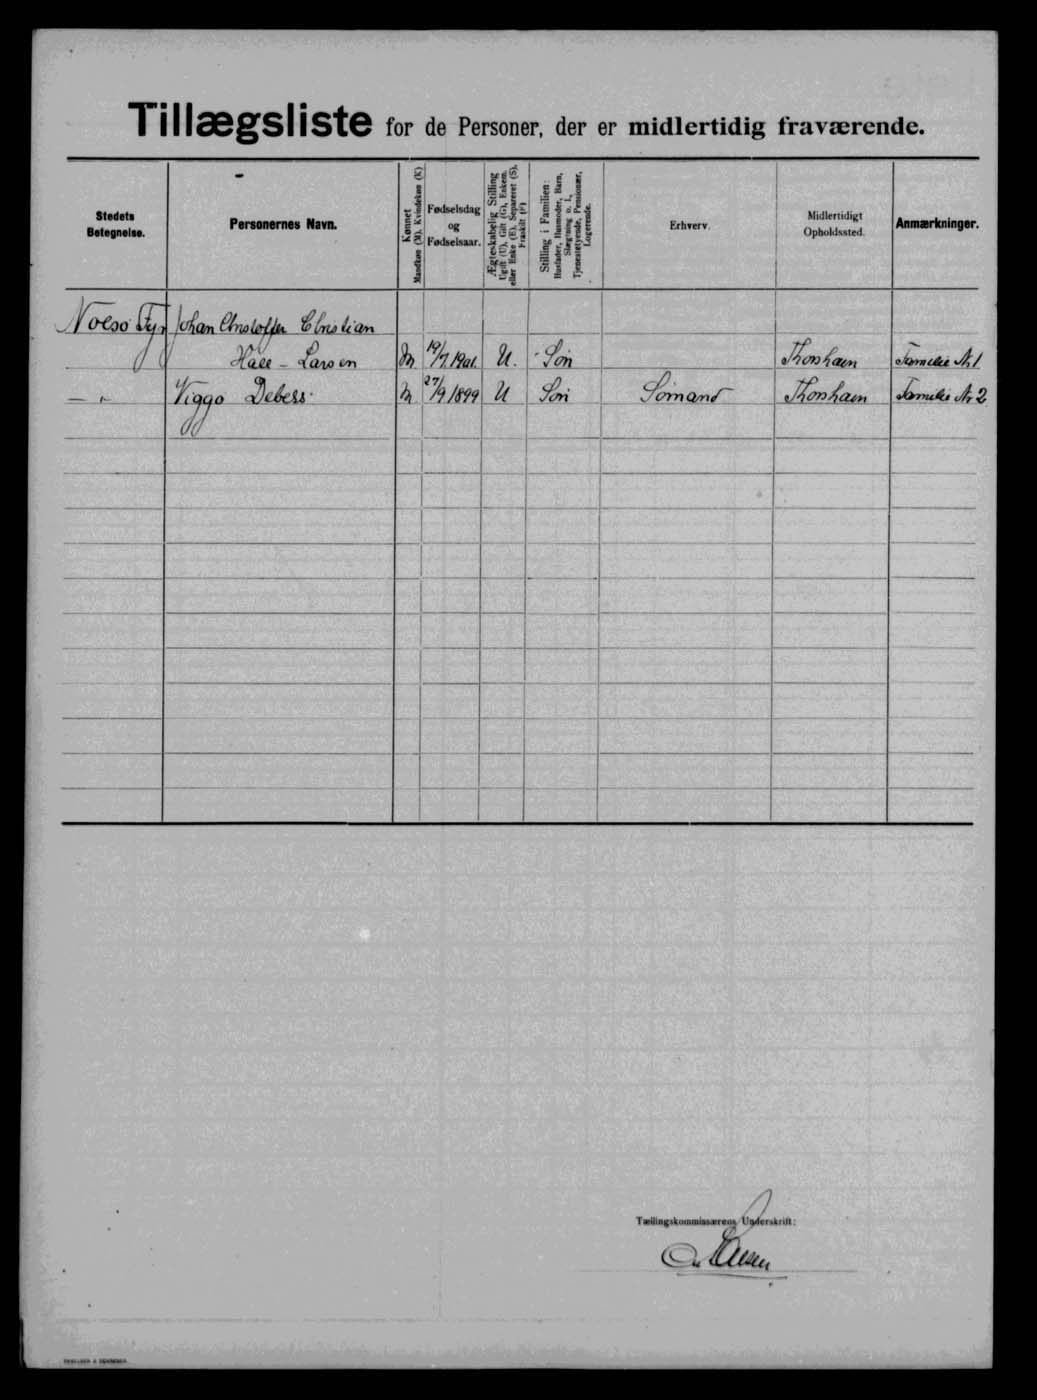 Tillægsliste for de Personer, der er midlertidig fraværende.
Stedets Betegnelse.
Personernes Navn.
Kønnet
Mandkøn (M), Kvindekøn (K)
Fødselsdag
og
Fødselsaar.
Ægteskabelig Stilling
Ugift (U), Gift (G), Enkem.
eller Enke (E), Separeret (S),
Fraskilt (F)
Stilling i Familien:
Husfader, Husmoder, Barn,
Slægtning o. l.,
Tjenestetyende, Pensionær,
Logerende.
Erhverv.
Midlertidigt
Opholdssted.
Anmærkninger.
Nolsö Fyr Johan Christoffer Christian
Hall - Larsen M 19/7 1901. U. Sön Thorshavn Familie Nr 1
— „ Viggo Debess. M 27/9 1899 U Sön Sömand Thorshavn Familie Nr 2
Tællingskommissærens Underskrift: